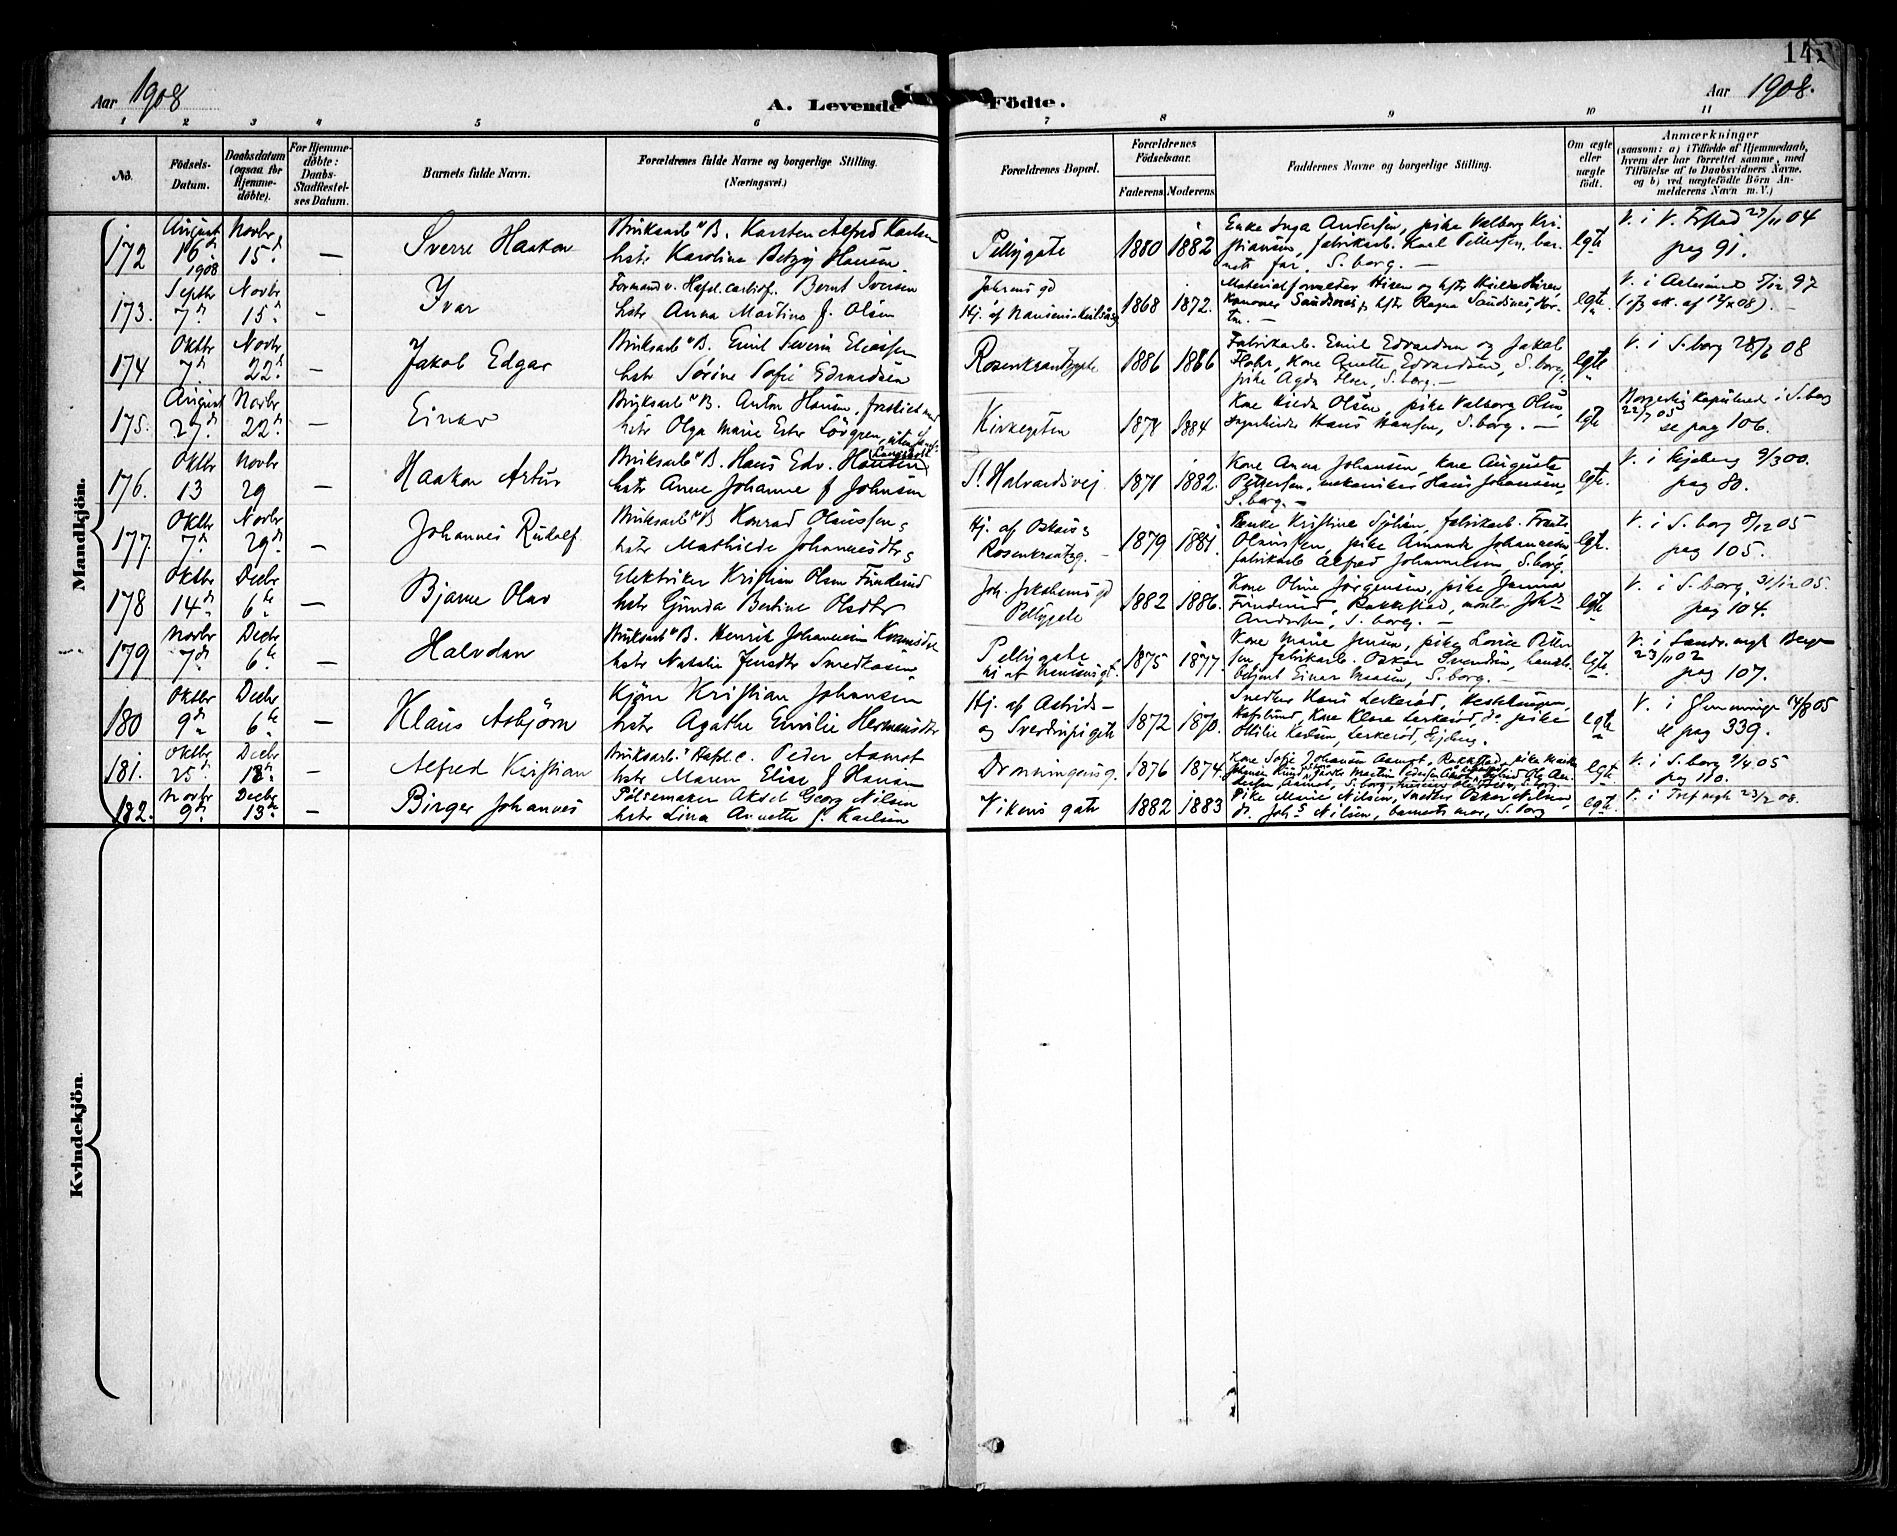 14
Aar 1908
A. Levende Födte.
Aar 1908.
1 2 3 4 5 6 7 8 9 10 11
No.
Födsels-Datum.
Daabsdatum (ogsaa for Hjemmedöbte).
For Hjemmedöbte: Daabs-Stadfæstelses Datum.
Barnets fulde Navn.
Forældrenes fulde Navne og borgerlige Stilling.
(Næringsvei.)
Forældrenes Bopæl.
Forældrenes Födselsaar.
Faderens Moderens
Faddernes Navne og borgerlige Stilling.
Om ægte eller uægte födt.
Anmærkninger
(saasom: a) i Tilfælde af Hjemmedaab, hvem der har forrettet samme, med Tilföielse af to Daabsvidners Navne, og b) ved uægtefödte Börn Anmelderens Navn m. V.)
Mandkjön.
172 August 16d 1908 Novbr 15d — Sverre Haakon
Bruksarb. B. Karsten Alfred Karlsen
hstr Karoline Betzy Hansen
Pellygate 1880 1882
Enke Inga Andersen, pike Valborg Kristiansen, fabrikarb. Karl Pettersen, barnets far, S.borg. —
egte
V. i V. Frstad 27/11 04
pag 91.
173. Septbr 7d Novbr 15d — Ivar
Formand v. Hafsl. carbidf. Bernt Iversen
hstr Anna Martine f. Olsen
1868 1872.
egte
V. i Aalesund 5/12 97
174 Oktbr 7d Novbr 22d — Jakob Edgar
Bruksarb B. Emil Severin Eliassen
hstr Sorine Sofie Edvardsen
Rosenkrantzgate 1886 1886
Fabrikarb. Emil Edvardsen og Jakob
Kone Anette Edvardsen, S.borg,
pike Agda S.borg. —
egte
V. i S.borg 28/6 08
175. August 27d Novbr 22d — Einar
Bruksarb B. Anton Hansen, fraskilt
hstr Olga Marie Ester Lövgren,
Kirkegaten 1878 1884
Kone Hilda Olsen, pike Valborg Olsen, Hans Hansen, S.borg. —
egte
Borgerlig kopuleret i S.borg
22/7 05 se pag 106.
176. Oktbr 13 Novbr 29 — Haakon Artur
Bruksarb B. Hans Edv. Hansen
hstr Anne Johanne f Johnsen
St. Halvardsvej 1871 1882.
Kone Anna Johansen, kone Auguste Pettersen, mekaniker Hans Johansen, S.borg —
egte.
V. i Ejeberg 9/3 00.
pag 80.
177. Oktbr 7d Novbr 29d — Johannes Rudolf
Bruksarb B Konrad Olaussen
hstr Mathilde Johannesdtr
Hj. af Oskars
Rosenkrantzg. — 1879 1881
Enke Kristine Sjölin, fabrikarb.
Olaussen, pike Amanda Johannesen
fabrikarb Alfred Johannesen S.borg.
egte.
V. i S.borg 8/12 05
pag 105.
178 Oktbr 14d Decbr 6te — Bjarne Olav
Elektriker Kristian Olsen Fundsrud
hstr Gunda Bertine Olsdtr
Joh. Jakobsens gd
Pellygate 1882 1886.
Kone Oline Jörgensen, pike Janna
Rakkestad, montör Joh.
Andersen, S.borg. —
egte
V. i S.borg, 31/12 05.
pag 104.
179 Novbr 7d Decbr 6te — Halvdan
Bruksarb B. Henrik Johannesen
hstr Natalie Jensdtr
Pellygate
hj af 1875 1877.
Kone Marie Jensen, pike Lovise Pettersen, fabrikarb. Oskar Svendsen, handelsbetjent Einar S.borg. —
egte
V. i Bergen
23/11 02
pag 107.
180 Oktbr 9d Decbr 6te — Klaus Asbjörn
Kjörer Kristian Johansen
hstr Agathe Emilie Hermansdtr
Hj. af Astrids—
og Sverdrupsgate 1872 1870.
Snedker Hans Lerkeröd,
Hafslund, Kone Klara Lerkeröd, do pike
Ottilie Karlsen, Lerkeröd, Ejeberg.
egte
V. i Glemminge 14/8 05
se pag 339.
181. Oktbr 25d Decbr 13d — Alfred Kristian
Bruksarb. Hafsl.c. Peder Aamot
hstr Maren Elise f Hansen
Dronningensg. 1876 1874.
Kone Sofie Johansen Aamot, Rakkestad, pike
egte
V. i S.borg 9/4 05
pag 110.
182. Novbr 9d Decbr 13d — Birger Johannes
Pölsemaker Aksel Georg Nilsen
hstr Lina Annette f. Karlsen
Vikens gate 1882 1883
Pike Marie Nilsen, Snedker Oskar Nilsen,
do. Johs Nilsen, barnets mor, S.borg
egte.
V. i 23/2 08.
Kvindekjön.